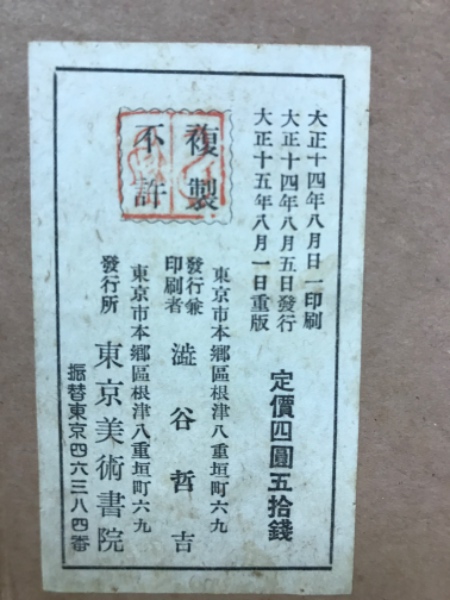 大正十四年八月日一印刷
大正十四年八月五日發行
大正十五年八月一日重版
定價四圓五拾錢
複製
不許
東京市本鄉區根津八重垣町六九
發行兼
印刷者
澁谷哲吉
東京市本鄉區根津八重垣町六九
發行所
東京美術書院
振替東京四六三八四番